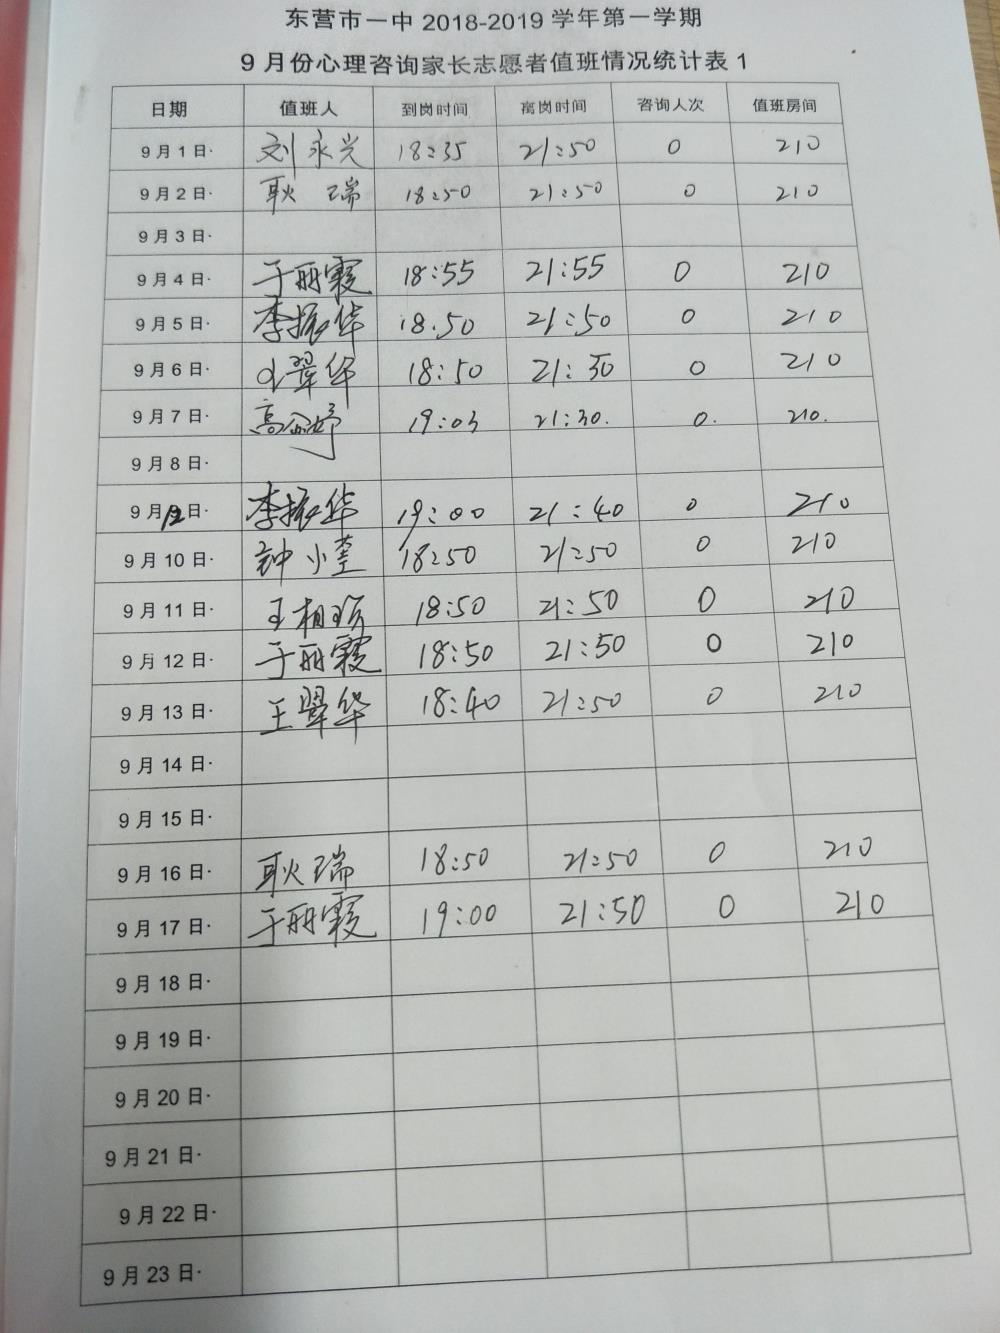 东营市一中 2018-2019 学年第一学期
9 月份心理咨询家长志愿者值班情况统计表 1
日期 值班人 到岗时间 离岗时间 咨询人次 值班房间
9 月 1 日· 刘永兴 18:35 21:50 0 210
9 月 2 日· 耿瑞 18:50 21:50 0 210
9 月 3 日·
9 月 4 日· 于丽霞 18:55 21:55 0 210
9 月 5 日· 李振华 18.50 21:50 0 210
9 月 6 日· 翠华 18:50 21:30 0 210
9 月 7 日· 高 婷 19:03 21:30. 0. 210.
9 月 8 日·
9 月 日· 李振华 19:00 21:40 0 210
9 月 10 日· 钟小莹 18:50 21:50 0 210
9 月 11 日· 王相 18:50 21:50 0 210
9 月 12 日· 于丽霞 18:50 21:50 0 210
9 月 13 日· 王翠华 18:40 21:50 0 210
9 月 14 日·
9 月 15 日·
9 月 16 日· 耿瑞 18:50 21:50 0 210
9 月 17 日· 于丽霞 19:00 21:50 0 210
9 月 18 日·
9 月 19 日·
9 月 20 日·
9 月 21 日·
9 月 22 日·
9 月 23 日·